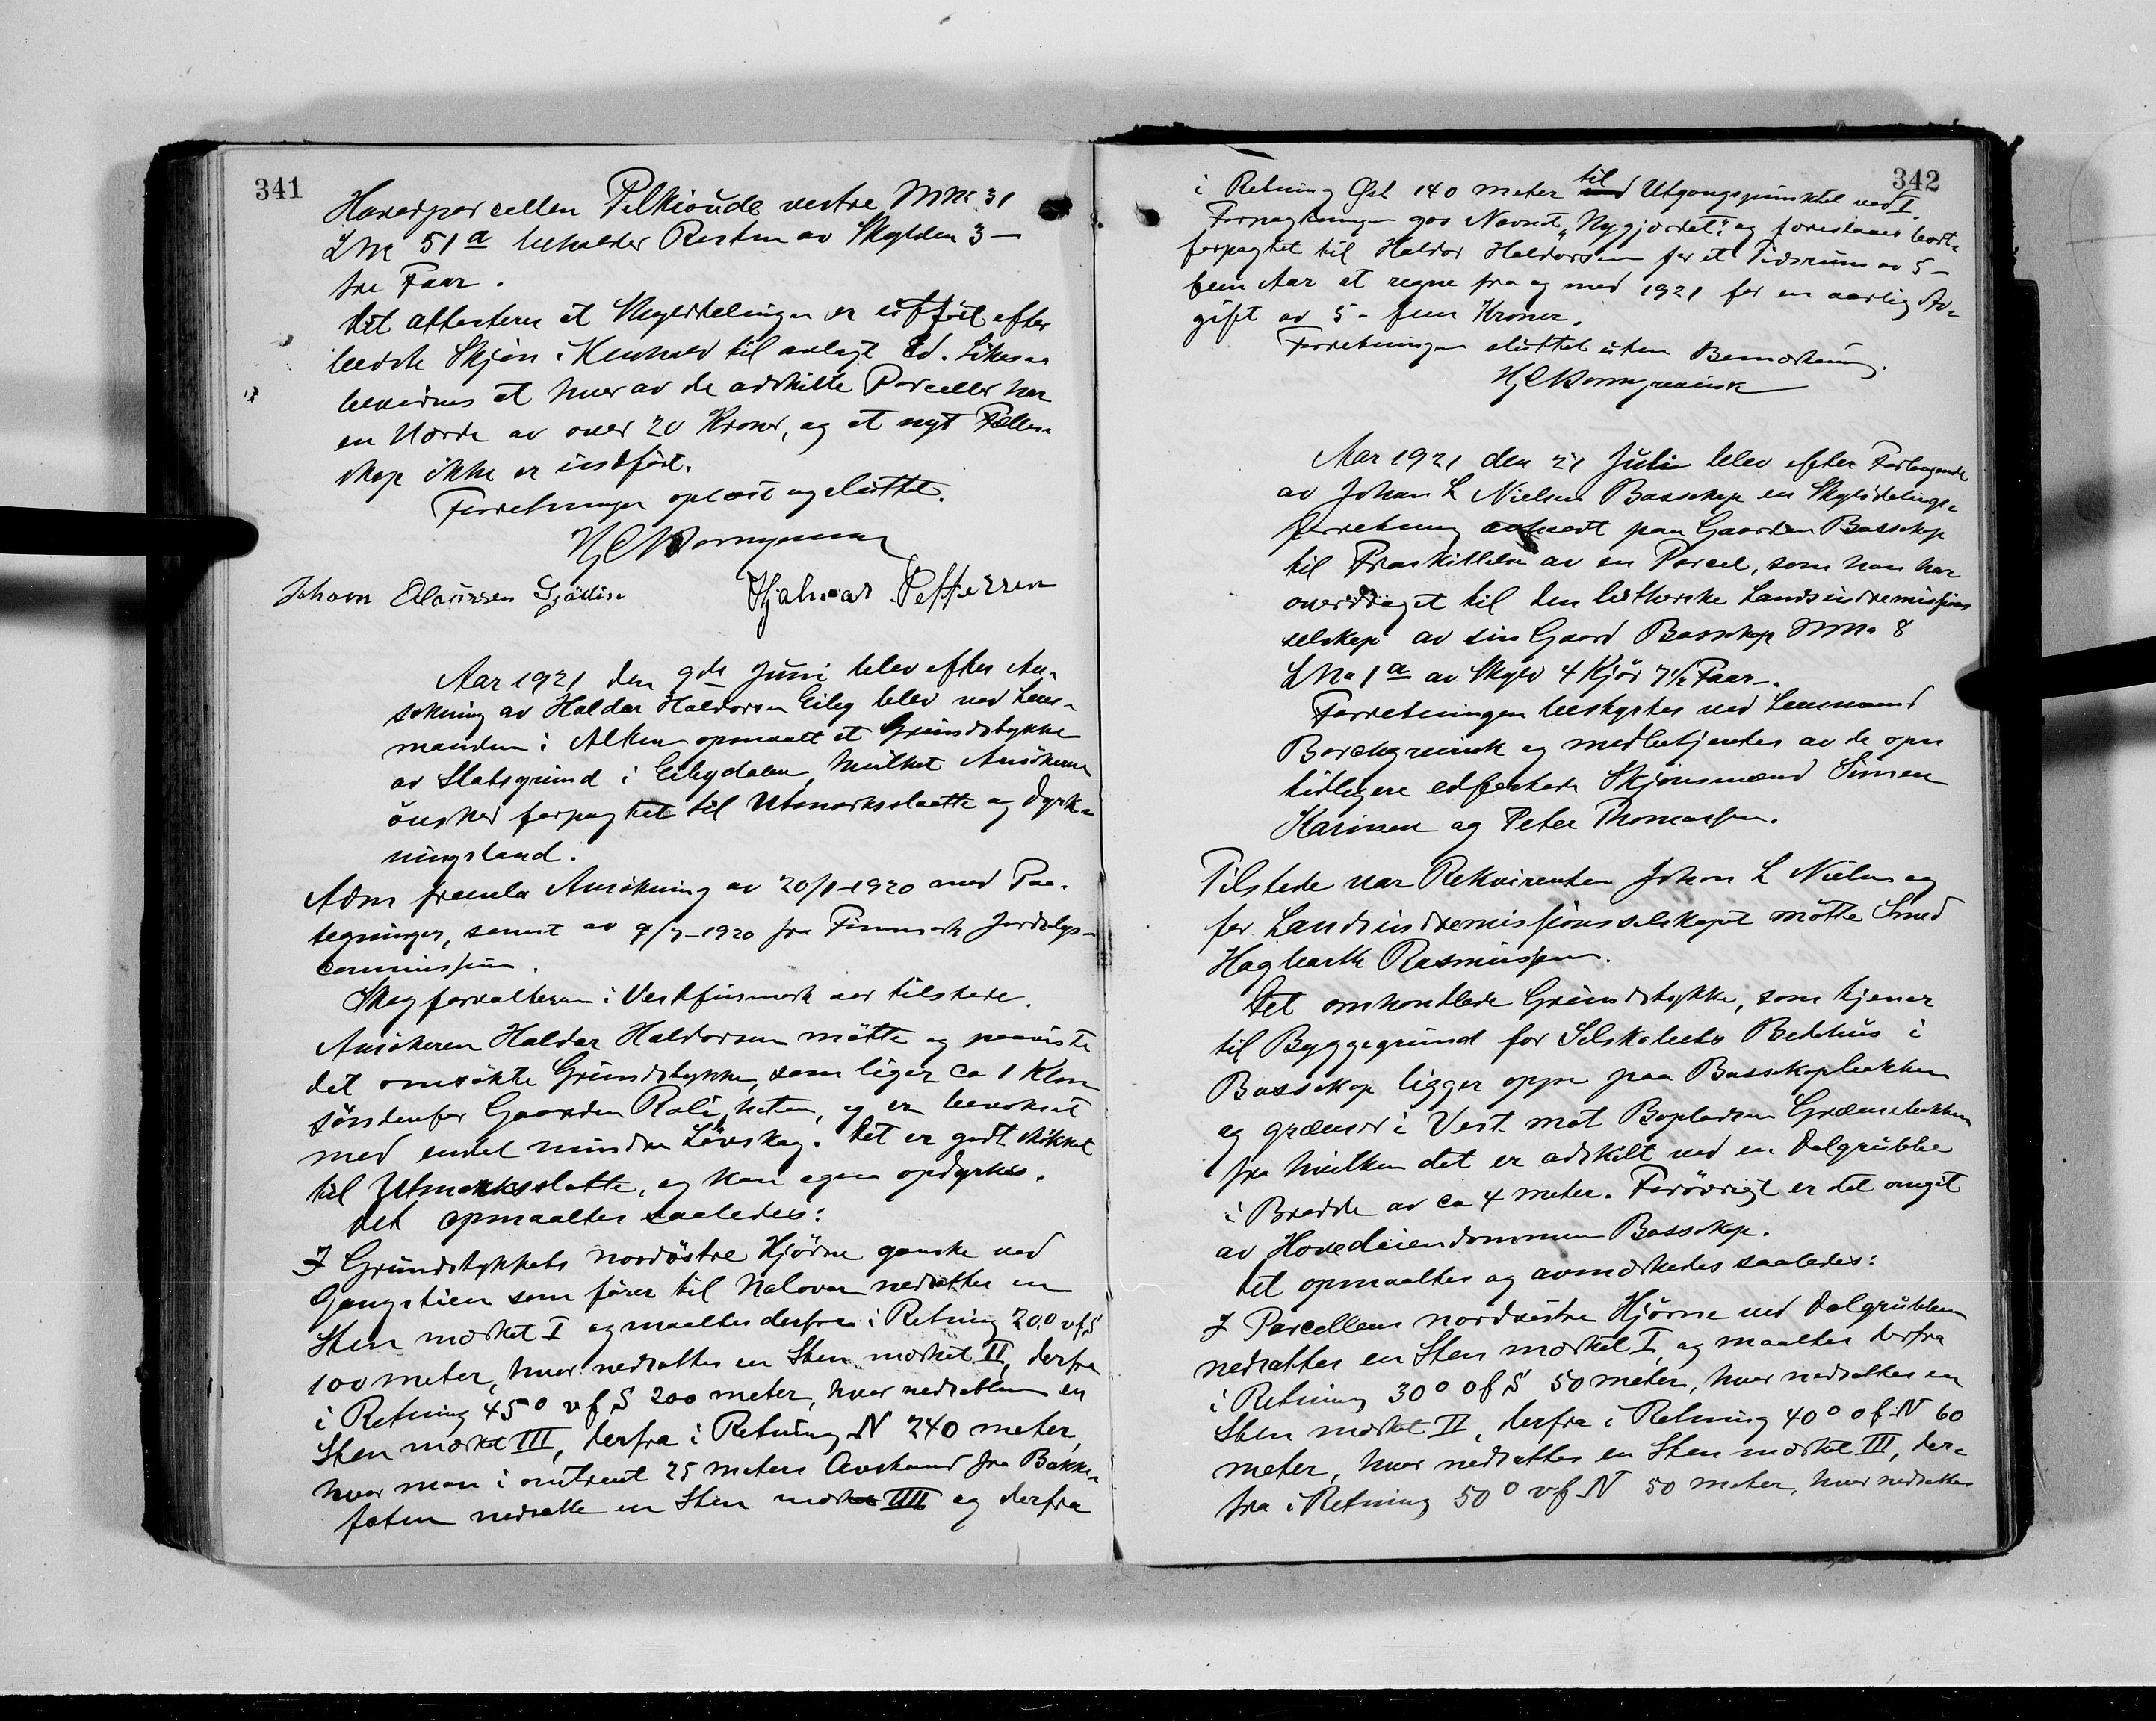 341
Hovedparcellen Pilkioude vestre MNr 31
LNr 51a beholder Resten av Skylden 3 –
tre Faar.
Det attesteres at Skylddelingen er utført efter
bedste Skjøn i Henhold til avlagt Ed. Likesaa
bevidnes at hver av de adskilte Parceller har
en Værdi av over 20 Kroner, og at nyt Fælles-
skap ikke er indført.
Forretningen oplæst og sluttet.
Johan Olaussen Hjalmar Pettersen
Aar 1921 den 9de Juni blev efter An-
søkning av Haldor Haldorsen Eiby blev ved Lens-
manden i Alten opmaalt et Grundstykke
av Statsgrund i Eibydalen, hvilket Ansøkeren
ønsker forpagtet til Utmarksslaatte og Dyrk-
ningsland.
Adm fremla Ansøkning av 20/1-1920 med Paa-
tegninger, senest av 9/7-1920 fra Finmark Jordsalgs-
commission.
Skogforvalteren i Vestfinmark var tilstede.
Ansøkeren Haldor Haldorsen møtte og paaviste
det omsøkte Grundstykke, som ligger ca 1 Klm
søndenfor Gaarden , og er bevokset
med endel mindre Løvskog. Det er godt skikket
til Utmarksslatte, og kan ogsaa opdyrkes.
Det opmaaltes saaledes:
I Grundstykkets nordøstre Hjørne ganske ved
Gangstien som fører til nedsattes en
Sten mærket I og maaltes derfra i Retning 20° v f S
100 meter, hvor nedsattes en Sten mærket II, derfra
i Retning 45° v f S 200 meter, hvor nedsattes en
Sten mærket III, derfra i Retning N 240 meter,
hvor man i omtrent 25 meters Avstand fra Bakke-
foten nedsatte en Sten mærket IIII og derfra
342
i Retning Øst 140 meter til Utgangspunktet ved I.
Forpagtningen gos Navnet "Nygjordet" og foreslaaes bort-
forpagtet til Haldor Haldorsen for et Tidsrum av 5 –
fem Aar at regne fra og med 1921 for en aarlig Av-
gift av 5 - fem Kroner.
Forretningen sluttet uten Bemærkning.
Aar 1921 den 21 Juli blev efter Forlangende
av Johan L Nielsen Bossekop en Skylddelings-
forretning avholdt paa Gaarden Bossekop
til Fraskillelse av en Parcel, som han har
overdraget til den lutherske Landsindremissions
selskap av sin Gaard Bossekop MNo 8
LNo 1a av Skyld 4 Kjør 7½ Faar.
Forretningen bestyrtes ved Lensmand
Borchgrevink og medbetjentes av de opn
tidligere edfæstede Skjønsmænd Simen
Karinsen og Peter Thomassen.
Tilstede var Rekvirenten Johan L Nielsen og
for Landsindremissionsselskapet møtte Smed
Hagbarth Rasmussen.
Det omhandlede Grundstykke, som tjener
til Byggegrund for Selskabets Bedehus i
Bossekop ligger oppe paa Bossekopbakken
og grænser i Vest mot Bopladsen Grænsebakken
fra hvilken det er adskilt ved en Dalgrubbe
i Bredde av ca 4 meter. Forøvrigt er det omgit
av Hovedeiendommen Bossekop.
Det opmaaltes og avmærkedes saaledes:
I Parcellens nordvestre Hjørne ved Dalgrubben
nedsattes en Sten mærket I, og maaltes derfra
i Retning 30° o f S 50 meter, hvor nedsattes en
Sten mærket II, derfra i Retning 40° o f N 60
meter, hvor nedsattes en Sten mærket III, der-
fra i Retning 50° v f N 50 meter, hvor nedsattes